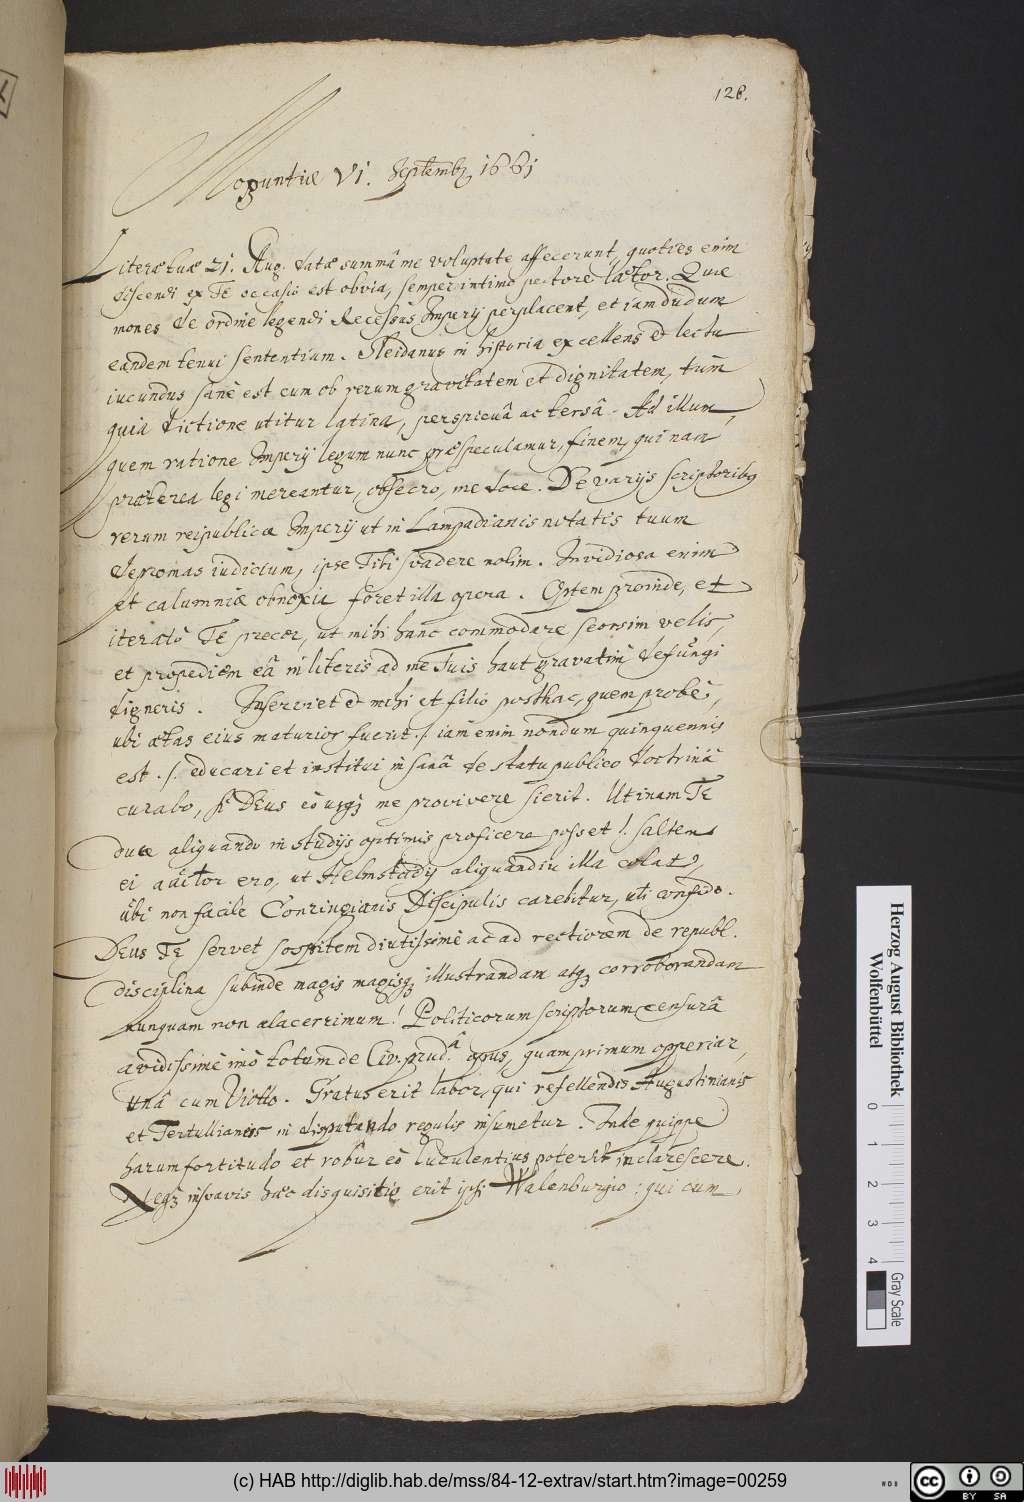 128.
Moguntiæ VI. Septembr. 1661
Literæ tuæ 21. Aug. datæ summâ me voluptate affecerunt, quoties enim
discendi ex TE occasio est obvia, sempèr intimo pectore lætor. Quæ
mones de ordine legendi Recessus Imperij perplacent, et iamdudum
eandem tenui sententiam. Sleidanus in historia excellens & lectu
iucundus sanè est cum ob rerum gravitatem et dignitatem, tum
quia dictione utitur latina, perspicuâ ac tersâ. Ad illum,
quem ratione Imperij legum nunc præspeculamur, finem, qui nam
præterea legi mereantur, obsecro, me doce. De varijs scriptoribus
rerum reipublicæ Imperij ut in Lampadianis notatis tuum
depromas iudicium, ipse Tibi svadere nolim. Invidiosa enim
et calumniæ obnoxia foret illa opera. Optem proinde, et
iteratò TE precor, ut mihi hanc commodare seorsim velis,
et propediem eâ in literis ad me Tuis haut gravatim defungi
digneris. Inserviet & mihi et filio posthac, quem probè,
ubi ætas eius maturior fuerit ./. iam enim nondum quinquennis
est ./. educari et institui in sanâ de statu publico doctrinâ
curabo, si DEUS eò usq; me provivere sierit. Utinam TE
duce aliquando in studijs optimis proficere posset! saltem
ei auctor ero, ut Helmstadij aliquandiu illa colat,
ubi non facile Conringianis Discipulis carebitur, uti confido.
DEUS TE servet sospitem diutissimè ac ad rectiorem de republ.
disciplina subinde magis magisq; illustrandam atq; corroborandam
nunquam non alacerrimum! Politicorum scriptorum censurâ
avidissimè imò totum de Civ. prud.â opus, quamprimum opperiar,
unâ cum Viotto. Gratus erit labor, qui refellendis Augustinianis
et Tertullianeis in disputando regulis insumetur. Inde quippe
harum fortitudo et robur eò luculentius poterit inclarescere.
Neq; insvavis hæc disquisitio erit ipsi Walenburgio: qui cum
Herzog August Bibliothek
Wolfenbüttel
0 1 2 3 4
Gray Scale
(c) HAB http://diglib.hab.de/mss/84-12-extrav/start.htm?image=00259
cc BY SA